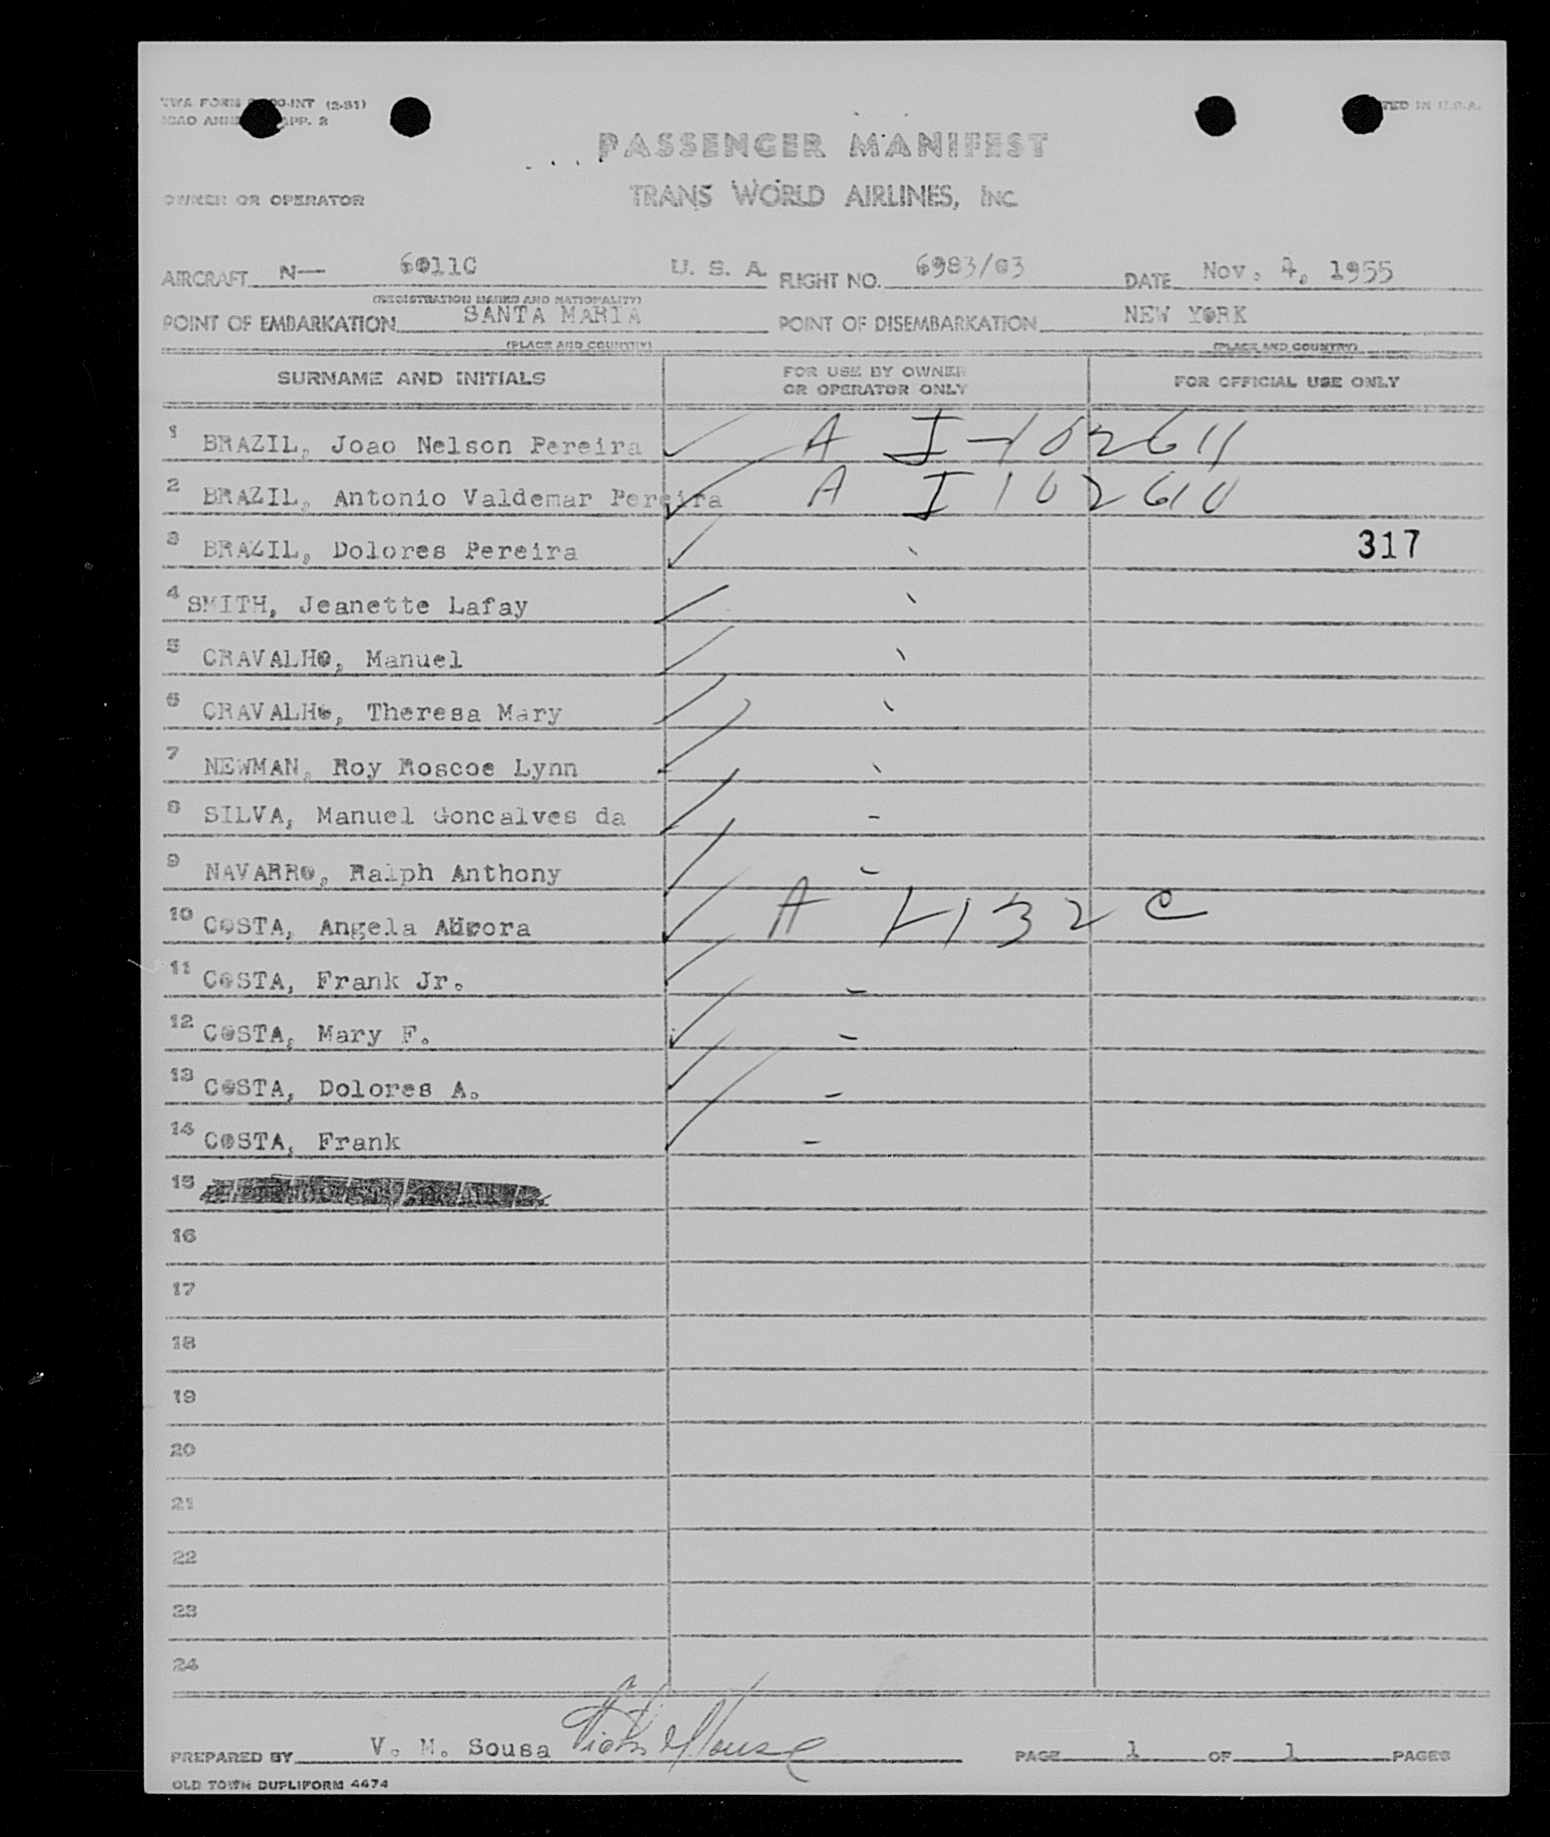 TWA FORM 00-INT (2-51)
ICAO ANNE APP. 2
TED IN U.S.A.
PASSENGER MANIFEST
OWNER OR OPERATOR TRANS WORLD AIRLINES, INC.
AIRCRAFT N— 6011C U. S. A. FLIGHT NO. 6983/03 DATE Nov. 4, 1955
(REGISTRATION MARKS AND NATIONALITY)
POINT OF EMBARKATION SANTA MARIA POINT OF DISEMBARKATION NEW YORK
(PLACE AND COUNTRY) (PLACE AND COUNTRY)
SURNAME AND INITIALS FOR USE BY OWNER OR OPERATOR ONLY FOR OFFICIAL USE ONLY
1 BRAZIL, Joao Nelson Pereira A I-102611
2 BRAZIL, Antonio Valdemar Pereira A I 102610
3 BRAZIL, Dolores Pereira 317
4 SMITH, Jeanette Lafay
5 CRAVALHO, Manuel
6 CRAVALHO, Theresa Mary
7 NEWMAN, Roy Roscoe Lynn
8 SILVA, Manuel Goncalves da
9 NAVARRO, Ralph Anthony
10 COSTA, Angela Aurora A
11 COSTA, Frank Jr.
12 COSTA, Mary F.
13 COSTA, Dolores A.
14 COSTA, Frank
15
16
17
18
19
20
21
22
23
24
PREPARED BY V. M. Sousa PAGE 1 OF 1 PAGES
OLD TOWN DUPLIFORM 4474